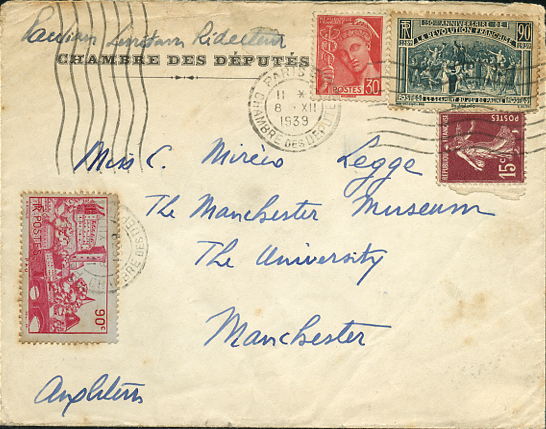 CHAMBRE DES DÉPUTÉS
PARIS
11 X
8 XII
1939
CHAMBRE DES DÉPUTÉS
POSTES 30
150e ANNIVERSAIRE DE
LA REVOLUTION FRANÇAISE
RF 90
1789 1939
POSTES LE SERMENT DU JEU DE PAUME
REPUBLIQUE FRANÇAISE
POSTES
15c
Miss C.
Legge
The Manchester Museum
The University
Manchester
RF POSTES
90c